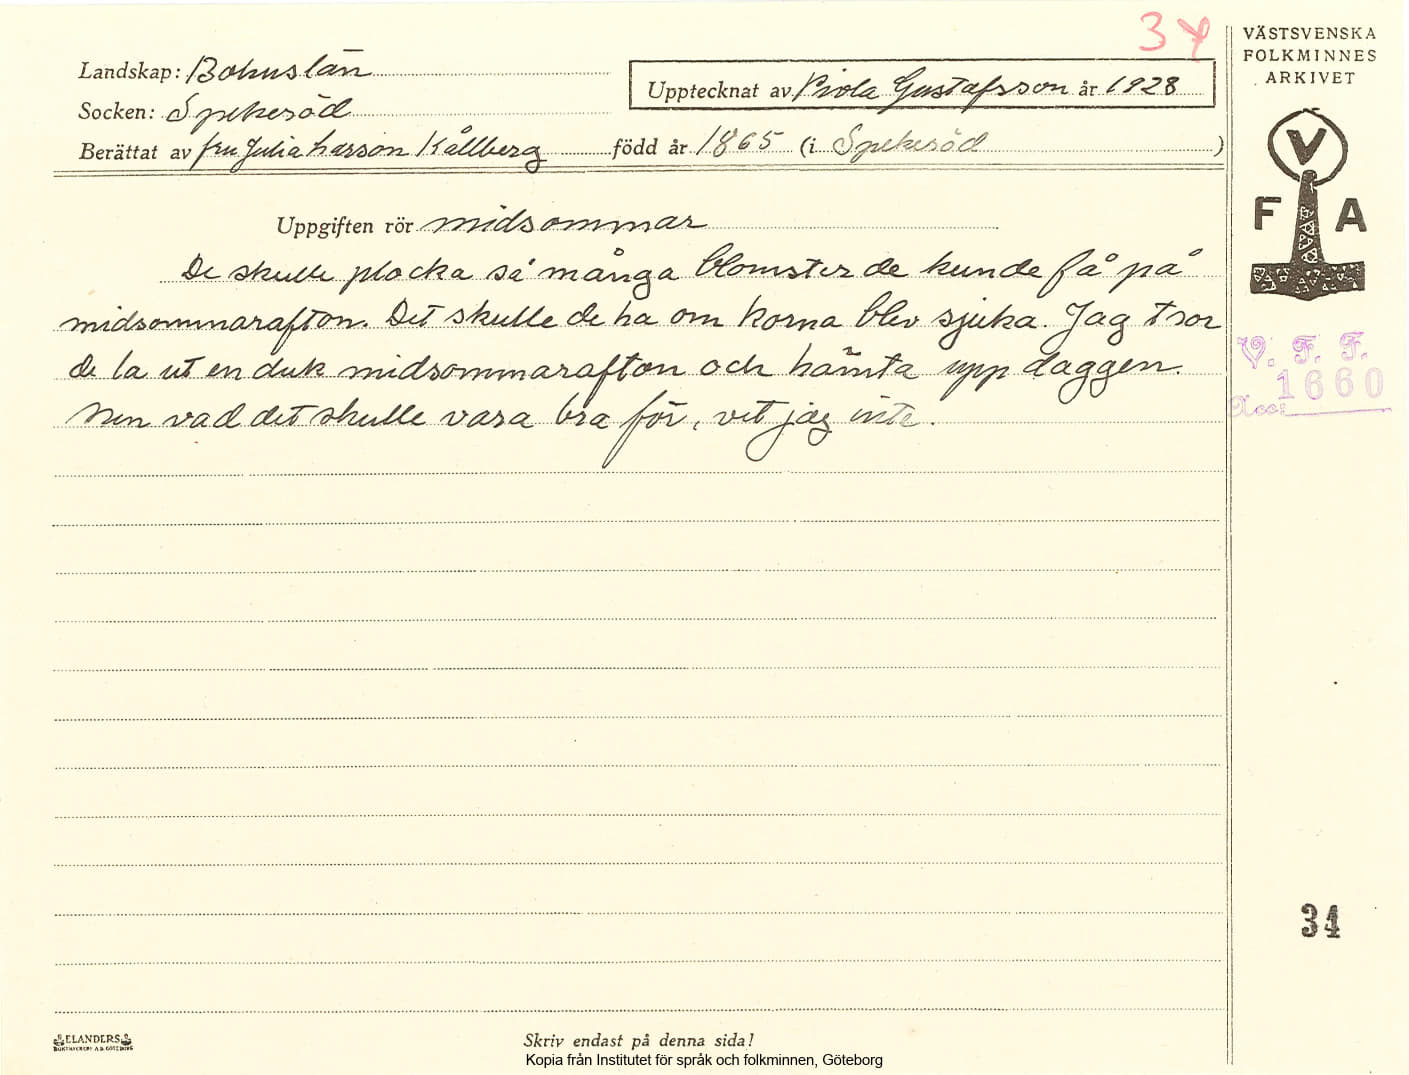 34
VÄSTSVENSKA
FOLKMINNES
ARKIVET
Landskap: Bohuslän
Upptecknat av Viola Gustafsson år 1928
Socken: Spekeröd
Berättat av fru Julia Larsson Kållberg född år 1865 (i Spekeröd )
V
F A
Uppgiften rör midsommar
De skulle plocka så många blomster de kunde få på
midsommarafton. Det skulle de ha om korna blev sjuka. Jag tror
de la ut en duk midsommarafton och hämta upp daggen.
Men vad det skulle vara bra för, vet jag inte.
V. F. F.
1660
Acc:
34
ELANDERS
BOKTRYCKERI A.B. GÖTEBORG
Skriv endast på denna sida!
Kopia från Institutet för språk och folkminnen, Göteborg